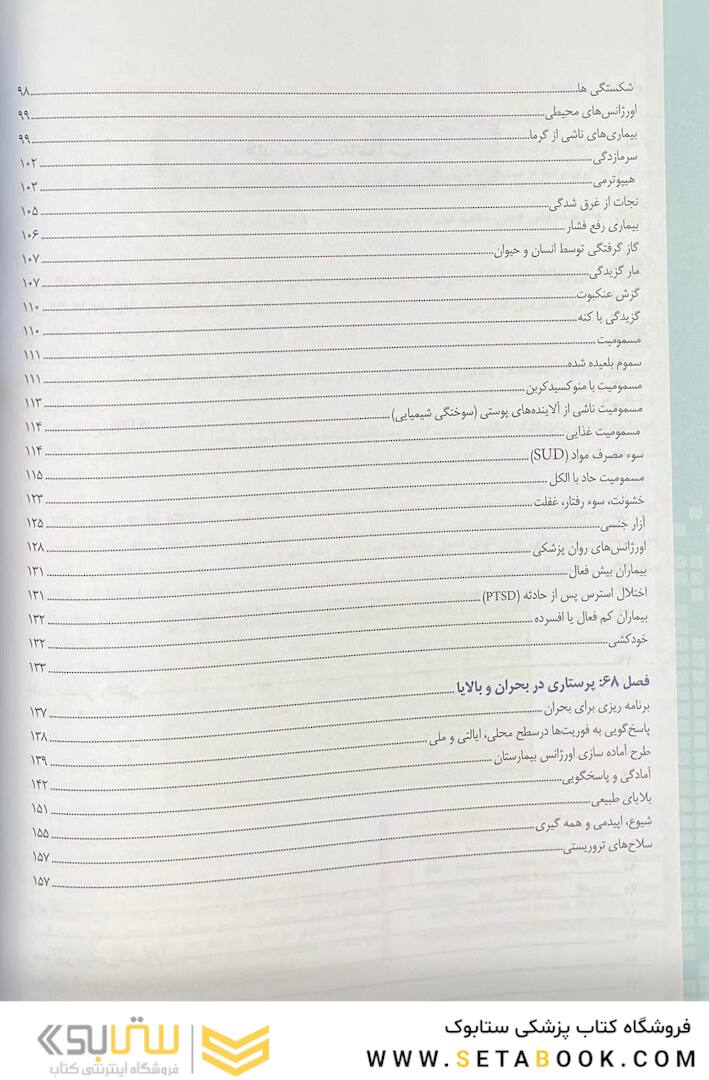 شکستگی ها ........ ۹۸
اورژانس‌های محیطی ........ ۹۹
بیماری‌های ناشی از گرما ........ ۹۹
سرمازدگی ........ ۱۰۲
هیپوترمی ........ ۱۰۳
نجات از غرق شدگی ........ ۱۰۵
بیماری رفع فشار ........ ۱۰۶
گاز گرفتگی توسط انسان و حیوان ........ ۱۰۷
مار گزیدگی ........ ۱۰۷
گزش عنکبوت ........ ۱۱۰
گزیدگی با کنه ........ ۱۱۰
مسمومیت ........ ۱۱۱
سموم بلعیده شده ........ ۱۱۱
مسمومیت با منوکسیدکربن ........ ۱۱۳
مسمومیت ناشی از آلاینده‌های پوستی (سوختگی شیمیایی) ........ ۱۱۴
مسمومیت غذایی ........ ۱۱۴
سوء مصرف مواد (SUD) ........ ۱۱۵
مسمومیت حاد با الکل ........ ۱۲۳
خشونت، سوء رفتار، غفلت ........ ۱۲۵
آزار جنسی ........ ۱۲۸
اورژانس‌های روان پزشکی ........ ۱۳۱
بیماران بیش فعال ........ ۱۳۱
اختلال استرس پس از حادثه (PTSD) ........ ۱۳۲
بیماران کم فعال یا افسرده ........ ۱۳۲
خودکشی ........ ۱۳۳
فصل ۶۸: پرستاری در بحران و بالایا ........ ۱۳۷
برنامه ریزی برای بحران ........ ۱۳۸
پاسخ‌گویی به فوریت‌ها درسطح محلی، ایالتی و ملی ........ ۱۳۹
طرح آماده سازی اورژانس بیمارستان ........ ۱۴۲
آمادگی و پاسخگویی ........ ۱۵۱
بلایای طبیعی ........ ۱۵۵
شیوع، اپیدمی و همه گیری ........ ۱۵۷
سلاح‌های تروریستی ........ ۱۵۷
فروشگاه کتاب پزشکی ستابوک
WWW.SETABOOK.COM
ستابوک
فروشگاه اینترنتی کتاب